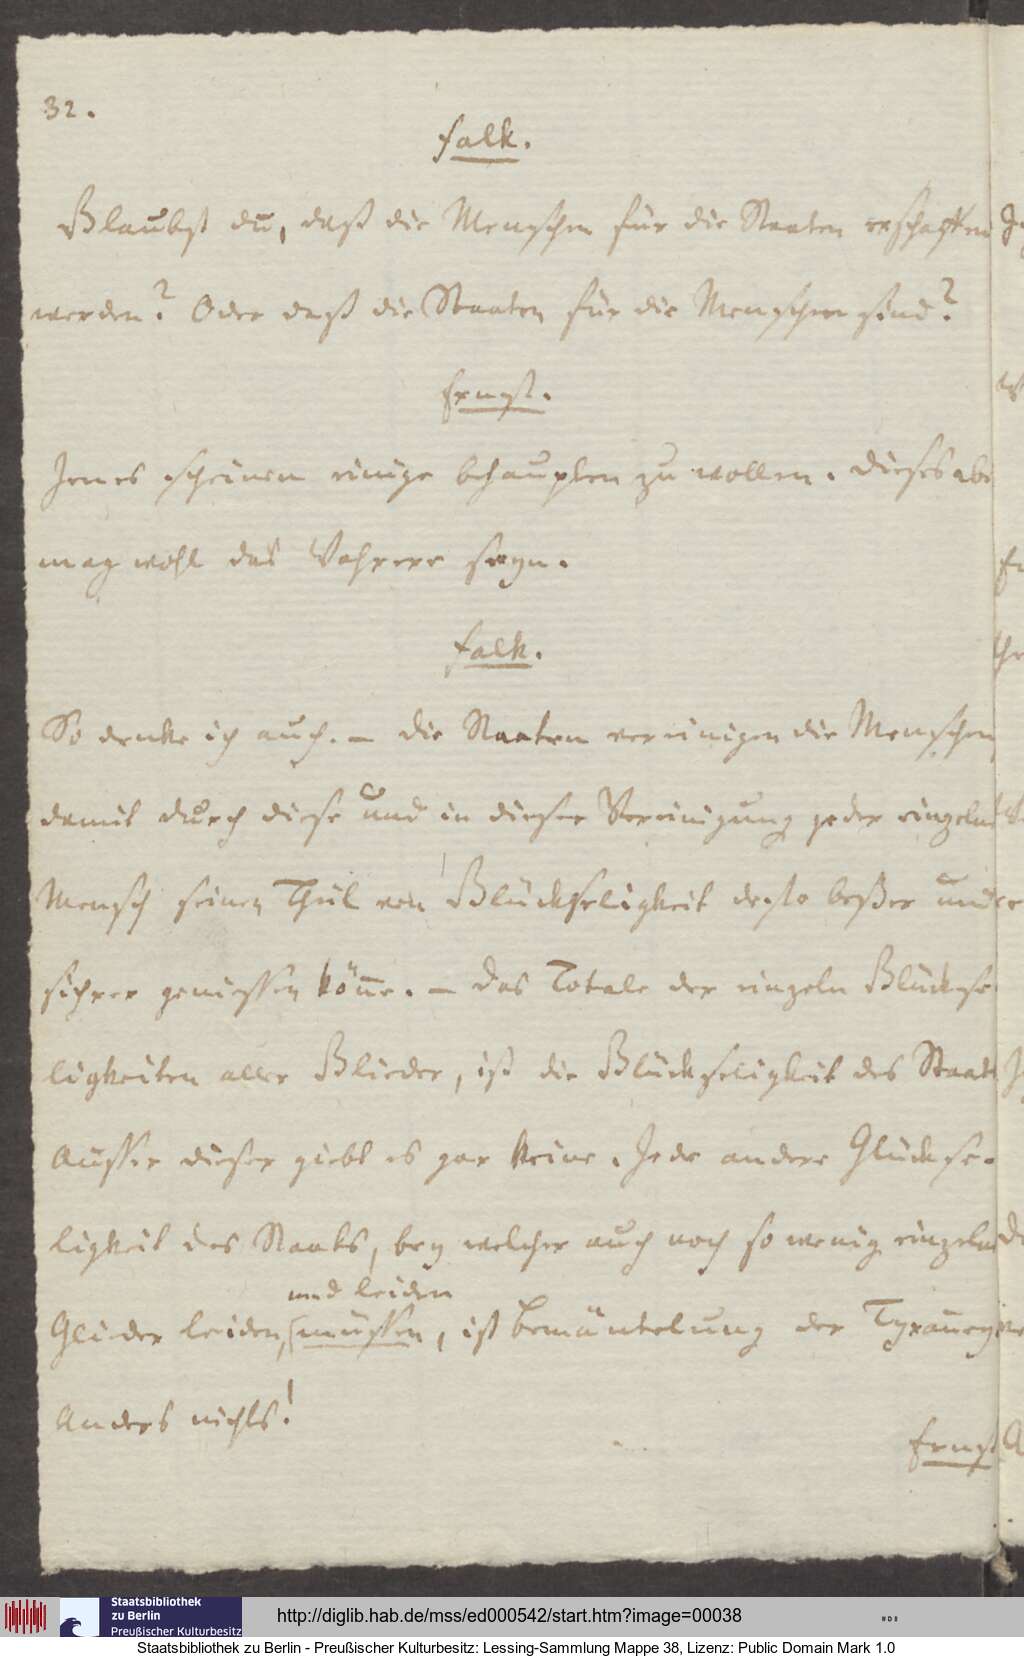 32.
Falk.
Glaubst du, daß die Menschen für die Staaten erschaffen
werden? Oder daß die Staaten für die Menschen sind?
Ernst.
Jenes scheinen einige behaupten zu wollen. Dieses abe
mag wohl das Wahrere seyn.
Falk.
So denke ich auch. – Die Staaten vereinigen die Menschen
damit durch diese und in dieser Vereinigung jeder einzelne
Mensch seinen Theil von Glückseligkeit desto beßer und
sichrer geniessen könne. – Das Totale der einzeln Glückse
ligkeiten aller Glieder, ist die Glückseligkeit des Staats
Ausser dieser giebt es gar keine. Jede andere Glückse-
ligkeit des Staats, bey welcher auch noch so wenig einzelne
und leiden
Glieder leiden, müssen, ist Bemäntelung der Tyranney
Anders nichts!
Ernst
Staatsbibliothek
zu Berlin
Preußischer Kulturbesitz
http://diglib.hab.de/mss/ed000542/start.htm?image=00038
Staatsbibliothek zu Berlin - Preußischer Kulturbesitz: Lessing-Sammlung Mappe 38, Lizenz: Public Domain Mark 1.0